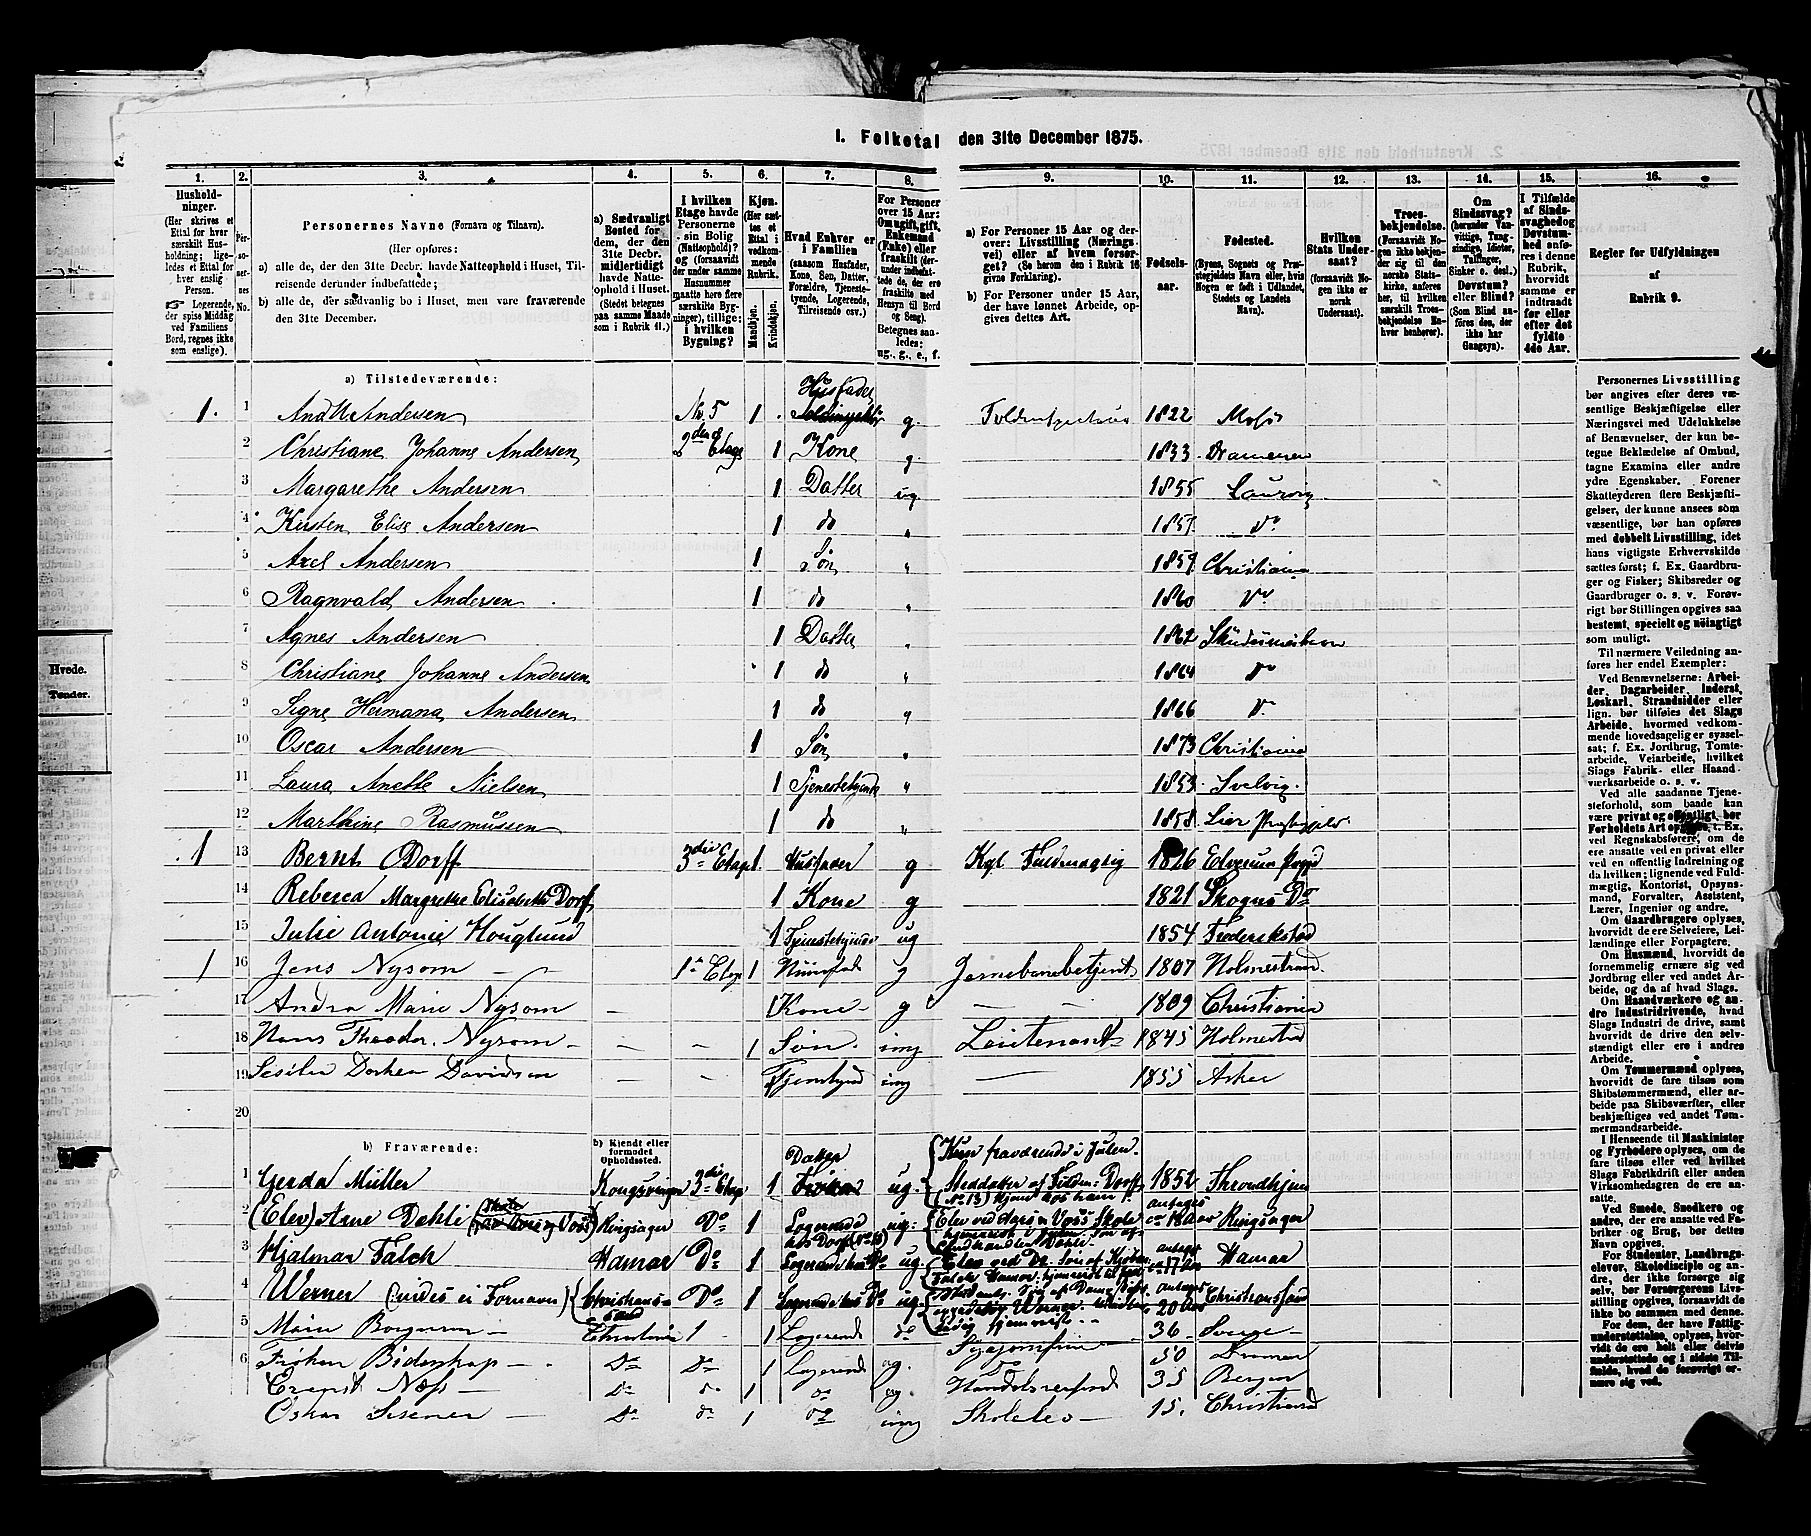 I. Folketal den 31te December 1875.
1. 2. 3. 4. 5. 6. 7. 8. 9. 10. 11. 12. 13. 14. 15. 16.
Husholdninger. (Her skrives et Ettal for hver særskilt Husholdning; ligeledes et Ettal for hver enslig Person. Logerende, der spise Middag ved Familiens Bord, regnes ikke som enslige).
Personernes No.
Personernes Navne (Fornavn og Tilnavn).
(Her opføres:
a) alle de, der den 31te Decbr. havde Natteophold i Huset, Tilreisende derunder indbefattede;
b) alle de, der sædvanlig bo i Huset, men vare fraværende den 31te December.
a) Sædvanligt Bosted for dem, der den 31te Decbr. midlertidigt havde Natteophold i Huset. (Stedet betegnes paa samme Maade som i Rubrik 11.)
I hvilken Etage havde Personerne sin Bolig (Natteophold)? og (forsaavidt der under samme Husnummer maatte høre flere særskilte Bygninger), tillige: i hvilken Bygning?
Kjøn. (Her sættes et Ettal i vedkommende Rubrik. Mandkjøn. Kvindekjøn.
Hvad Enhver er i Familien (saasom Husfader, Kone, Søn, Datter, Forældre, Tjenestetyende, Logerende, Tilreisende osv.)
For Personer over 15 Aar: Om ugift, gift, Enkemand (Enke) eller fraskilt (derunder indbefattede de, der ere fraskilte med Hensyn til Bord og Seng). Betegnes saaledes: ug., g., e., f.
a) For Personer 15 Aar og derover: Livsstilling (Næringsvei) eller af hvem forsørget? (Se herom den i Rubrik 16 givne Forklaring).
b) For Personer under 15 Aar, der have lønnet Arbeide, opgives dettes Art.
Fødselsaar.
Fødested. (Byens, Sognets og Præstegjeldets Navn eller, hvis Nogen er født i Udlandet, Stedets og Landets Navn).
Hvilken Stats Undersaat? (forsaavidt Nogen ikke er norsk Undersaat).
Troesbekjendelse. (Forsaavidt Nogen ikke bekjender sig til den norske Statskirke, anføres her, til hvilken særskilt Troesbekjendelse Enhver henhører).
Om Sindssvag? (herunder Vanvittige, Tungsindige, Idioter, Tullinger, Sinker o. desl.) Døvstum? eller Blind? (Som Blind anføres den, der ikke har Gangsyn).
I Tilfælde af Sindssvaghed og Døvstumhed anføres i denne Rubrik, hvorvidt samme er indtraadt før eller efter det fyldte 4de Aar.
Regler for Udfyldningen af Rubrik 9.
a) Tilstedeværende:
1. 1 Andr. Andersen No. 5 1 Husfader g. 1822 Moss
2 Christiane Johanne Andersen 2den Etage 1 Kone g. 1833 Drammen
3 Margarethe Andersen 1 Datter ug. 1855 Laurvig
4 Kirsten Elise Andersen 1 do „ 1857 Do
5 Axel Andersen 1 Søn „ 1859 Christiania
6 Ragnvald Andersen 1 do „ 1860 Do
7 Agnes Andersen 1 Datter „ 1862 Skudesneshavn
8 Christiane Johanne Andersen 1 do „ 1864 Do
9 Signe Hermana Andersen 1 do „ 1866 Do
10 Oscar Andersen 1 Søn „ 1873 Christiania
11 Laura Anette Nielsen 1 Tjenestetyende „ 1853 Svelvig.
12 Marthine Rasmussen 1 do „ 1858 Lier Prstgjeld
1 13 Bernt Dorff 3die Etage 1 Husfader g Kgl Fuldmægtig 1826 Elverum Prgd
14 Rebecca Margrethe Elisabeth Dorff 1 Kone g 1821 Skogns Do
15 Julie Antonie Houglund 1 Tjenestetyende ug 1854 Frederikstad
1 16 Jens Nysom – – 1ste Etage 1 Huusfad g Jernebanebetjent 1807 Holmestrand.
17 Andra Marie Nysom – 1 Kone – g – – 1809 Christiania
18 Hans Theodor Nysom – – – 1 Søn. ung Leutenant 1845 Holmestrad
19 Sesilie Dorthea Davidsen – – 1 Tjenstynd ung – 1855 Asker
20
b) Fraværende:
b) Kjendt eller formodet Opholdssted.
1 Gerda Müller Kongsvinger 3die Etage 1 Datter ug. Kun fraværende i Julen. Steddatter af Fuldm: Dorff (No 13) hjemme hos ham 1852 Throndhjem
2 (Elev) Arne Dehli Ringsager Do 1 Logerende hos Dorff (No 13) ug: Elev ved Aars & Voss' Skole antages ca 18 Aar Ringsager
3 Hjalmar Falch Hamar Do 1 Logerende hos Do ug. Elev ved Do. antages ca 17 Aar Hamar
4 Werner (vides ei Fornavn) Christiansund Do 1 Logerende hos Do ug. antages 20 Aar Christiansund
5 Marie Christiania 1 – 1 Logerende do 36 –
6 Frøken – Do Do 1 Logerend ug. 50 Dramen
Ernst Næss – Do do 1 do ug. Handelsreisend 35 Bergen
Oskar – Do do 1 do ung – 15. Christiansd
Personernes Livsstilling bør angives efter deres væsentlige Beskjæftigelse eller Næringsvei med Udelukkelse af Benævnelser, der kun betegne Beklædelse af Ombud, tagne Examina eller andre ydre Egenskaber. Forener Skatteyderen flere Beskjæftigelser, der kunne ansees som væsentlige, bør han opføres med dobbelt Livsstilling, idet hans vigtigste Erhvervskilde sættes først; f. Ex. Gaardbruger og Fisker; Skibsreder og Gaardbruger o. s. v. Forøvrigt bør Stillingen opgives saa bestemt, specielt og nøiagtigt som muligt.
Til nærmere Veiledning anføres her endel Exempler:
Ved Benævnelserne: Arbeider, Dagarbeider, Inderst, Løskarl, Strandsidder eller lign. bør tilføies det Slags Arbeide, hvormed vedkommende hovedsagelig er sysselsat; f. Ex. Jordbrug, Tomtearbeide, Veiarbeide, hvilket Slags Fabrik- eller Haandværksarbeide o. s. v.
Ved alle saadanne Tjenesteforhold, som baade kan være privat og offentligt, bør Forholdets Art opgives, t. Ex. ved Regnskabsførere, om de ere ansatte ved en privat eller ved en offentlig Indretning og da hvilken; lignende ved Fuldmægtig, Kontorist, Opsynsmand, Forvalter, Assistent, Lærer, Ingeniør og andre.
Om Gaardbrugere oplyses, hvorvidt de ere Selveiere, Leilændinge eller Forpagtere.
Om Husmænd, hvorvidt de fornemmelig ernære sig ved Jordbrug eller ved andet Arbeide, og da af hvad Slags.
Om Haandværkere og andre Industridrivende, hvad Slags Industri de drive, samt hvorvidt de drive den selvstændigt eller ere i andres Arbeide.
Om Tømmermænd oplyses, hvorvidt de fare tilsøs som Skibstømmermænd, eller arbeide paa Skibsværfter, eller beskjæftiges ved andet Tømmermandsarbeide.
I Henseende til Maskinister og Fyrbødere oplyses, om de fare tilsøs eller ved hvilket Slags Fabrikdrift eller anden Virksomhedsgren de ere ansatte.
Ved Smede, Snedkere og andre, der ere ansatte ved Fabriker og Brug, bør dettes Navn opgives.
For Studenter, Landbrugselever, Skoledisciple og andre, der ikke forsørge sig selv, bør Forsørgerens Livsstilling opgives, forsaavidt de ikke bo sammen med denne.
For dem, der have Fattigunderstøttelse, oplyses, hvorvidt de ere helt eller delvis understøttede og i sidste Tilfælde, hvad de forøvrigt ernære sig ved.
Hvede.
Tønder.